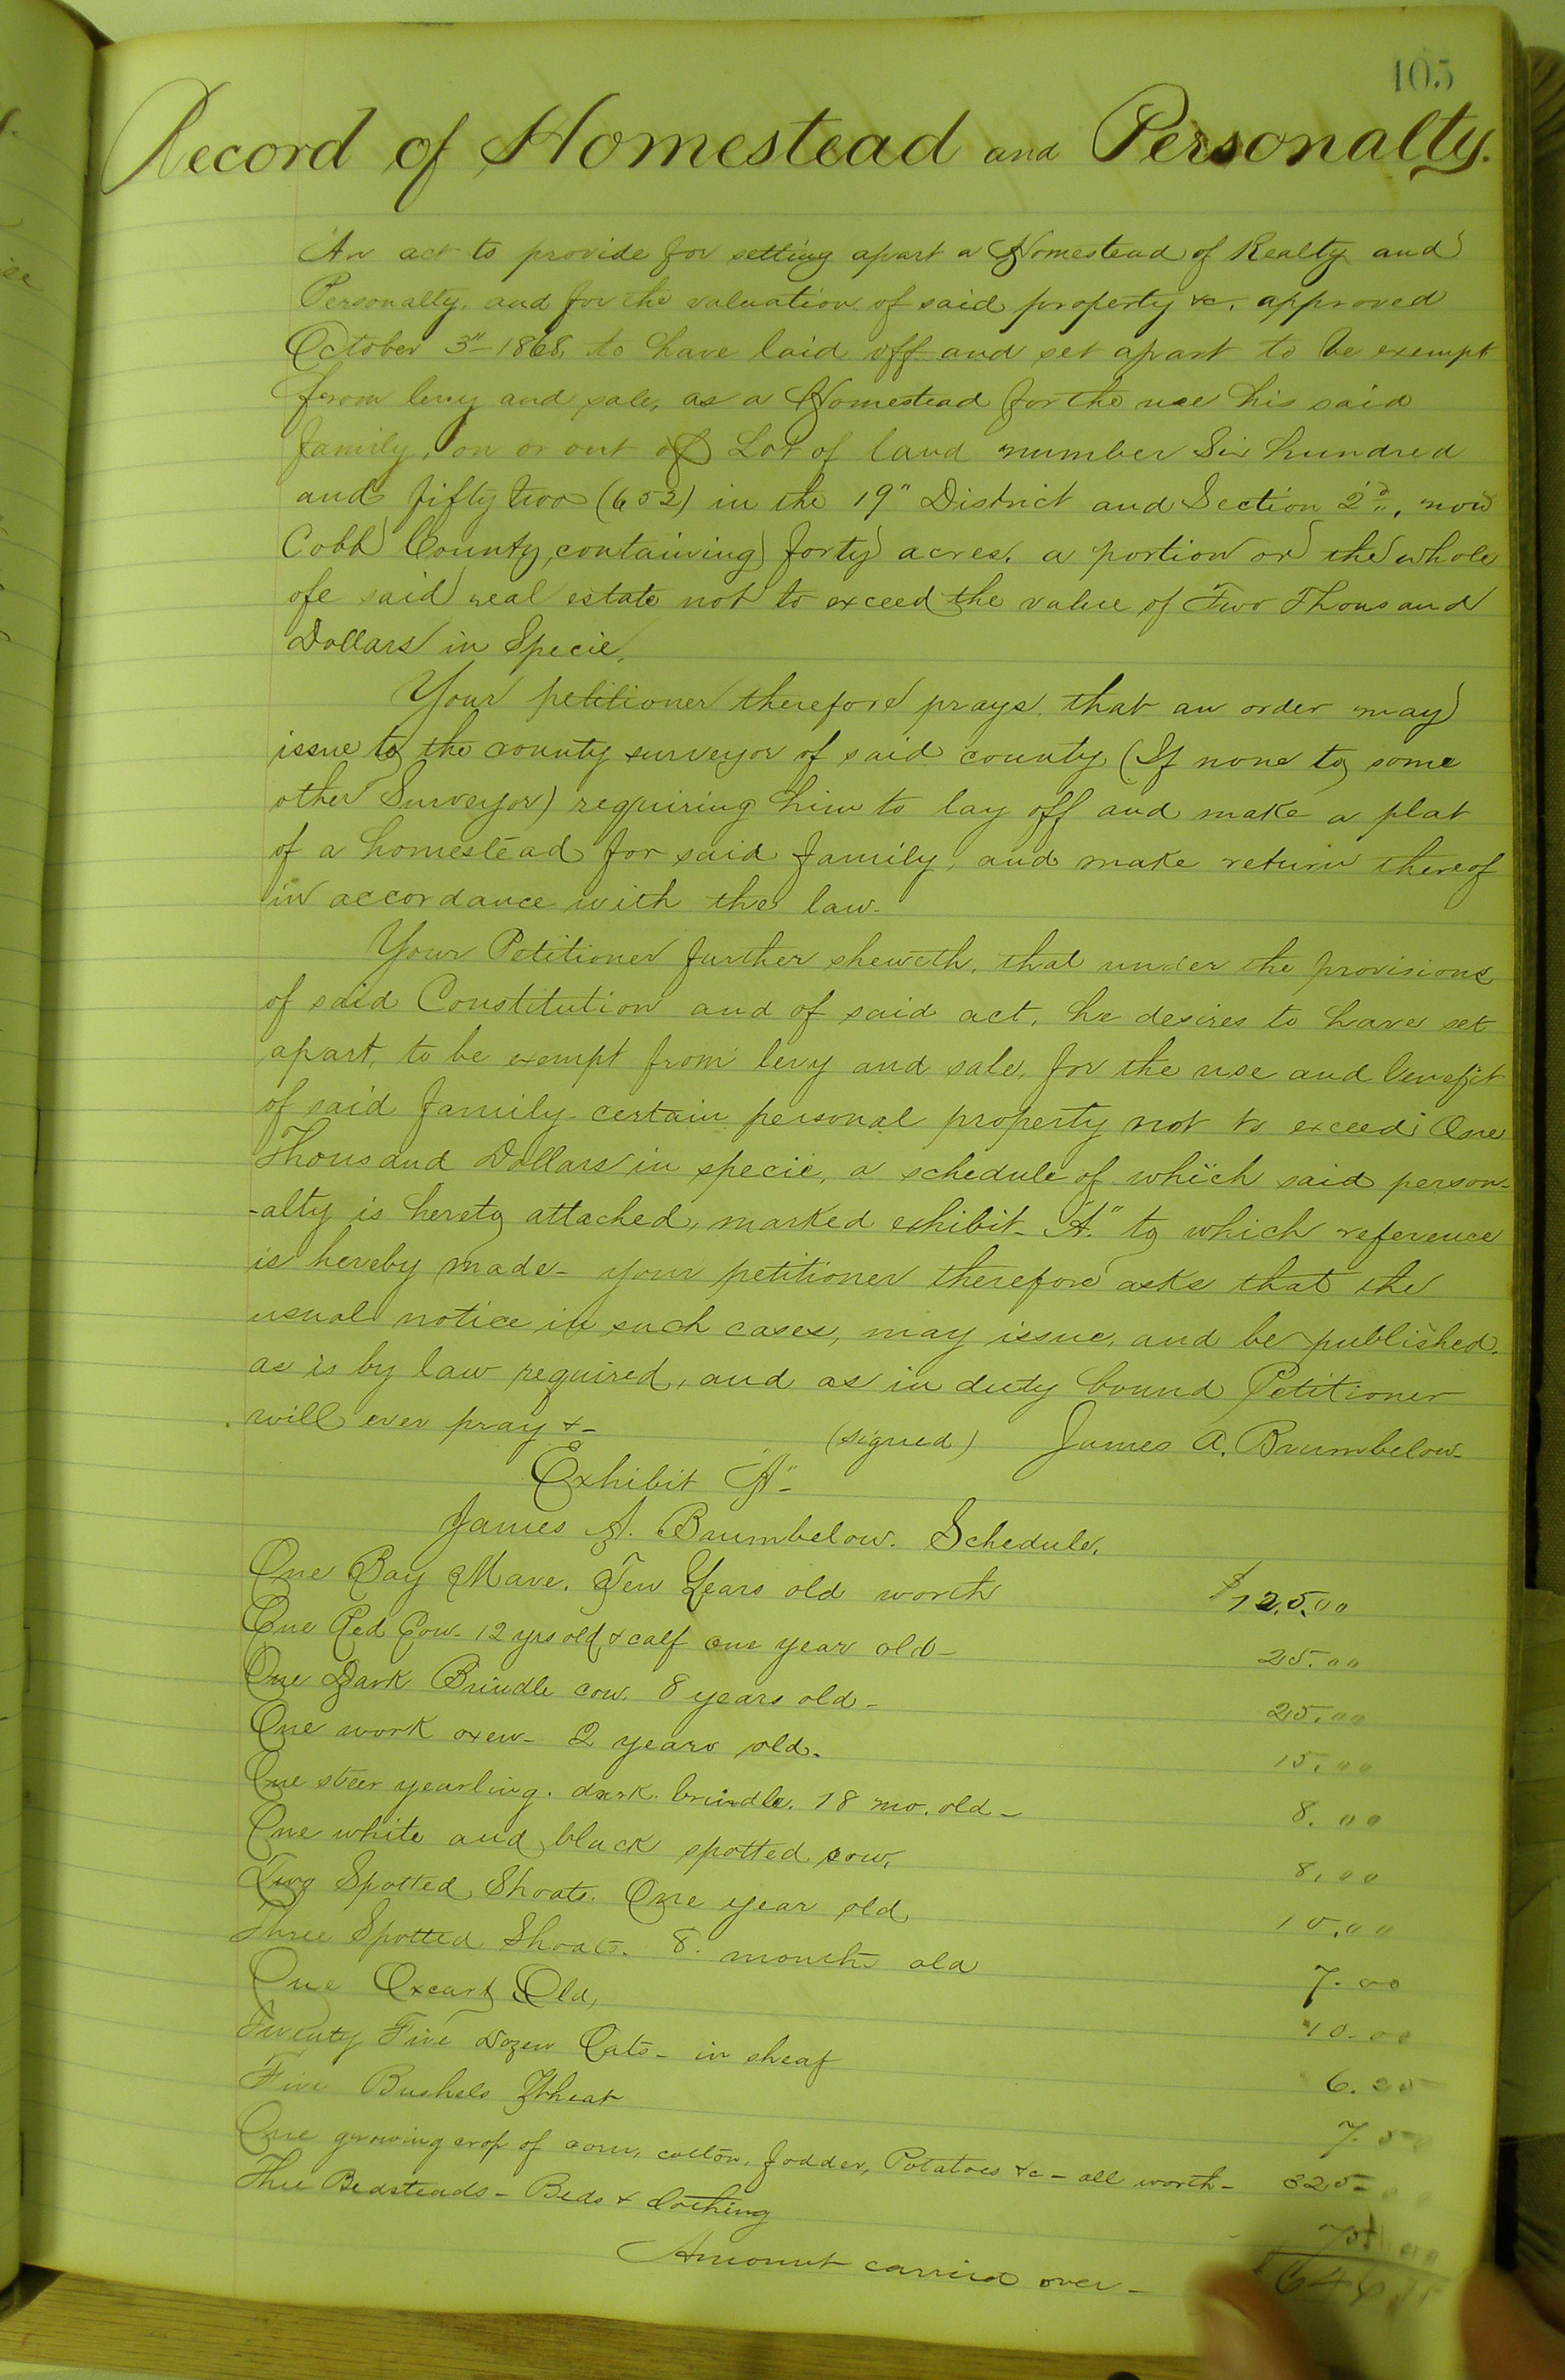 105
Record of Homestead and Personalty.
An act to provide for setting apart a Homestead of Realty and
Personalty, and for the valuation of said property &c. approved
October 3" 1868, to have laid off and set apart to be exempt
from levy and sale, as a Homestead for the use his said
family, on or out of Lot of land number Six hundred
and fifty two (652) in the 19" District and Section 2d, now
Cobb County, containing forty acres. a portion or the whole
of said real estate not to exceed the value of Two Thousand
Dollars in Specie.
Your petitioner therefore prays, that an order may
issue to the county surveyor of said county (If none to some
other Surveyor) requiring him to lay off and make a plat
of a homestead for said family, and make return thereof
in accordance with the law-
Your Petitioner further sheweth, that under the provisions
of said Constitution and of said act, he desires to have set
apart, to be exempt from levy and sale, for the use and benefit
of said family certain personal property not to exceed One
Thousand Dollars in specie, a schedule of which said person-
-alty is hereto attached, marked exhibit "A." to which reference
is hereby made- your petitioner therefore asks that the
usual notice in such cases, may issue, and be published.
as is by law required, and as in duty bound Petitioner
will ever pray &-
(signed) James A. Brumbelow-
Exhibit "A"-
James A. Brumbelow. Schedule.
One Bay Mare. Ten Years old worth $125.00
One Red Cow- 12 yrs old & calf one year old- 25.00
One Dark Brindle cow. 8 years old- 25.00
One work oxen- 2 years old. 15.00
One steer yearling. dark. brindle. 18 mo. old- 8.00
One white and black spotted sow. 8.00
Two Spotted Shoats. One year old 10.00
Three Spotted Shoats. 8. months old 7.00
One Oxcart Old, 10.00
Twenty Five Dozen Oats- in sheaf 6.00
Five Bushels Wheat 7.50
One growing crop of corn, cotton, fodder, Potatoes &c- all worth- 325
Three Bedsteads- Beds & clothing
Amount carried over-